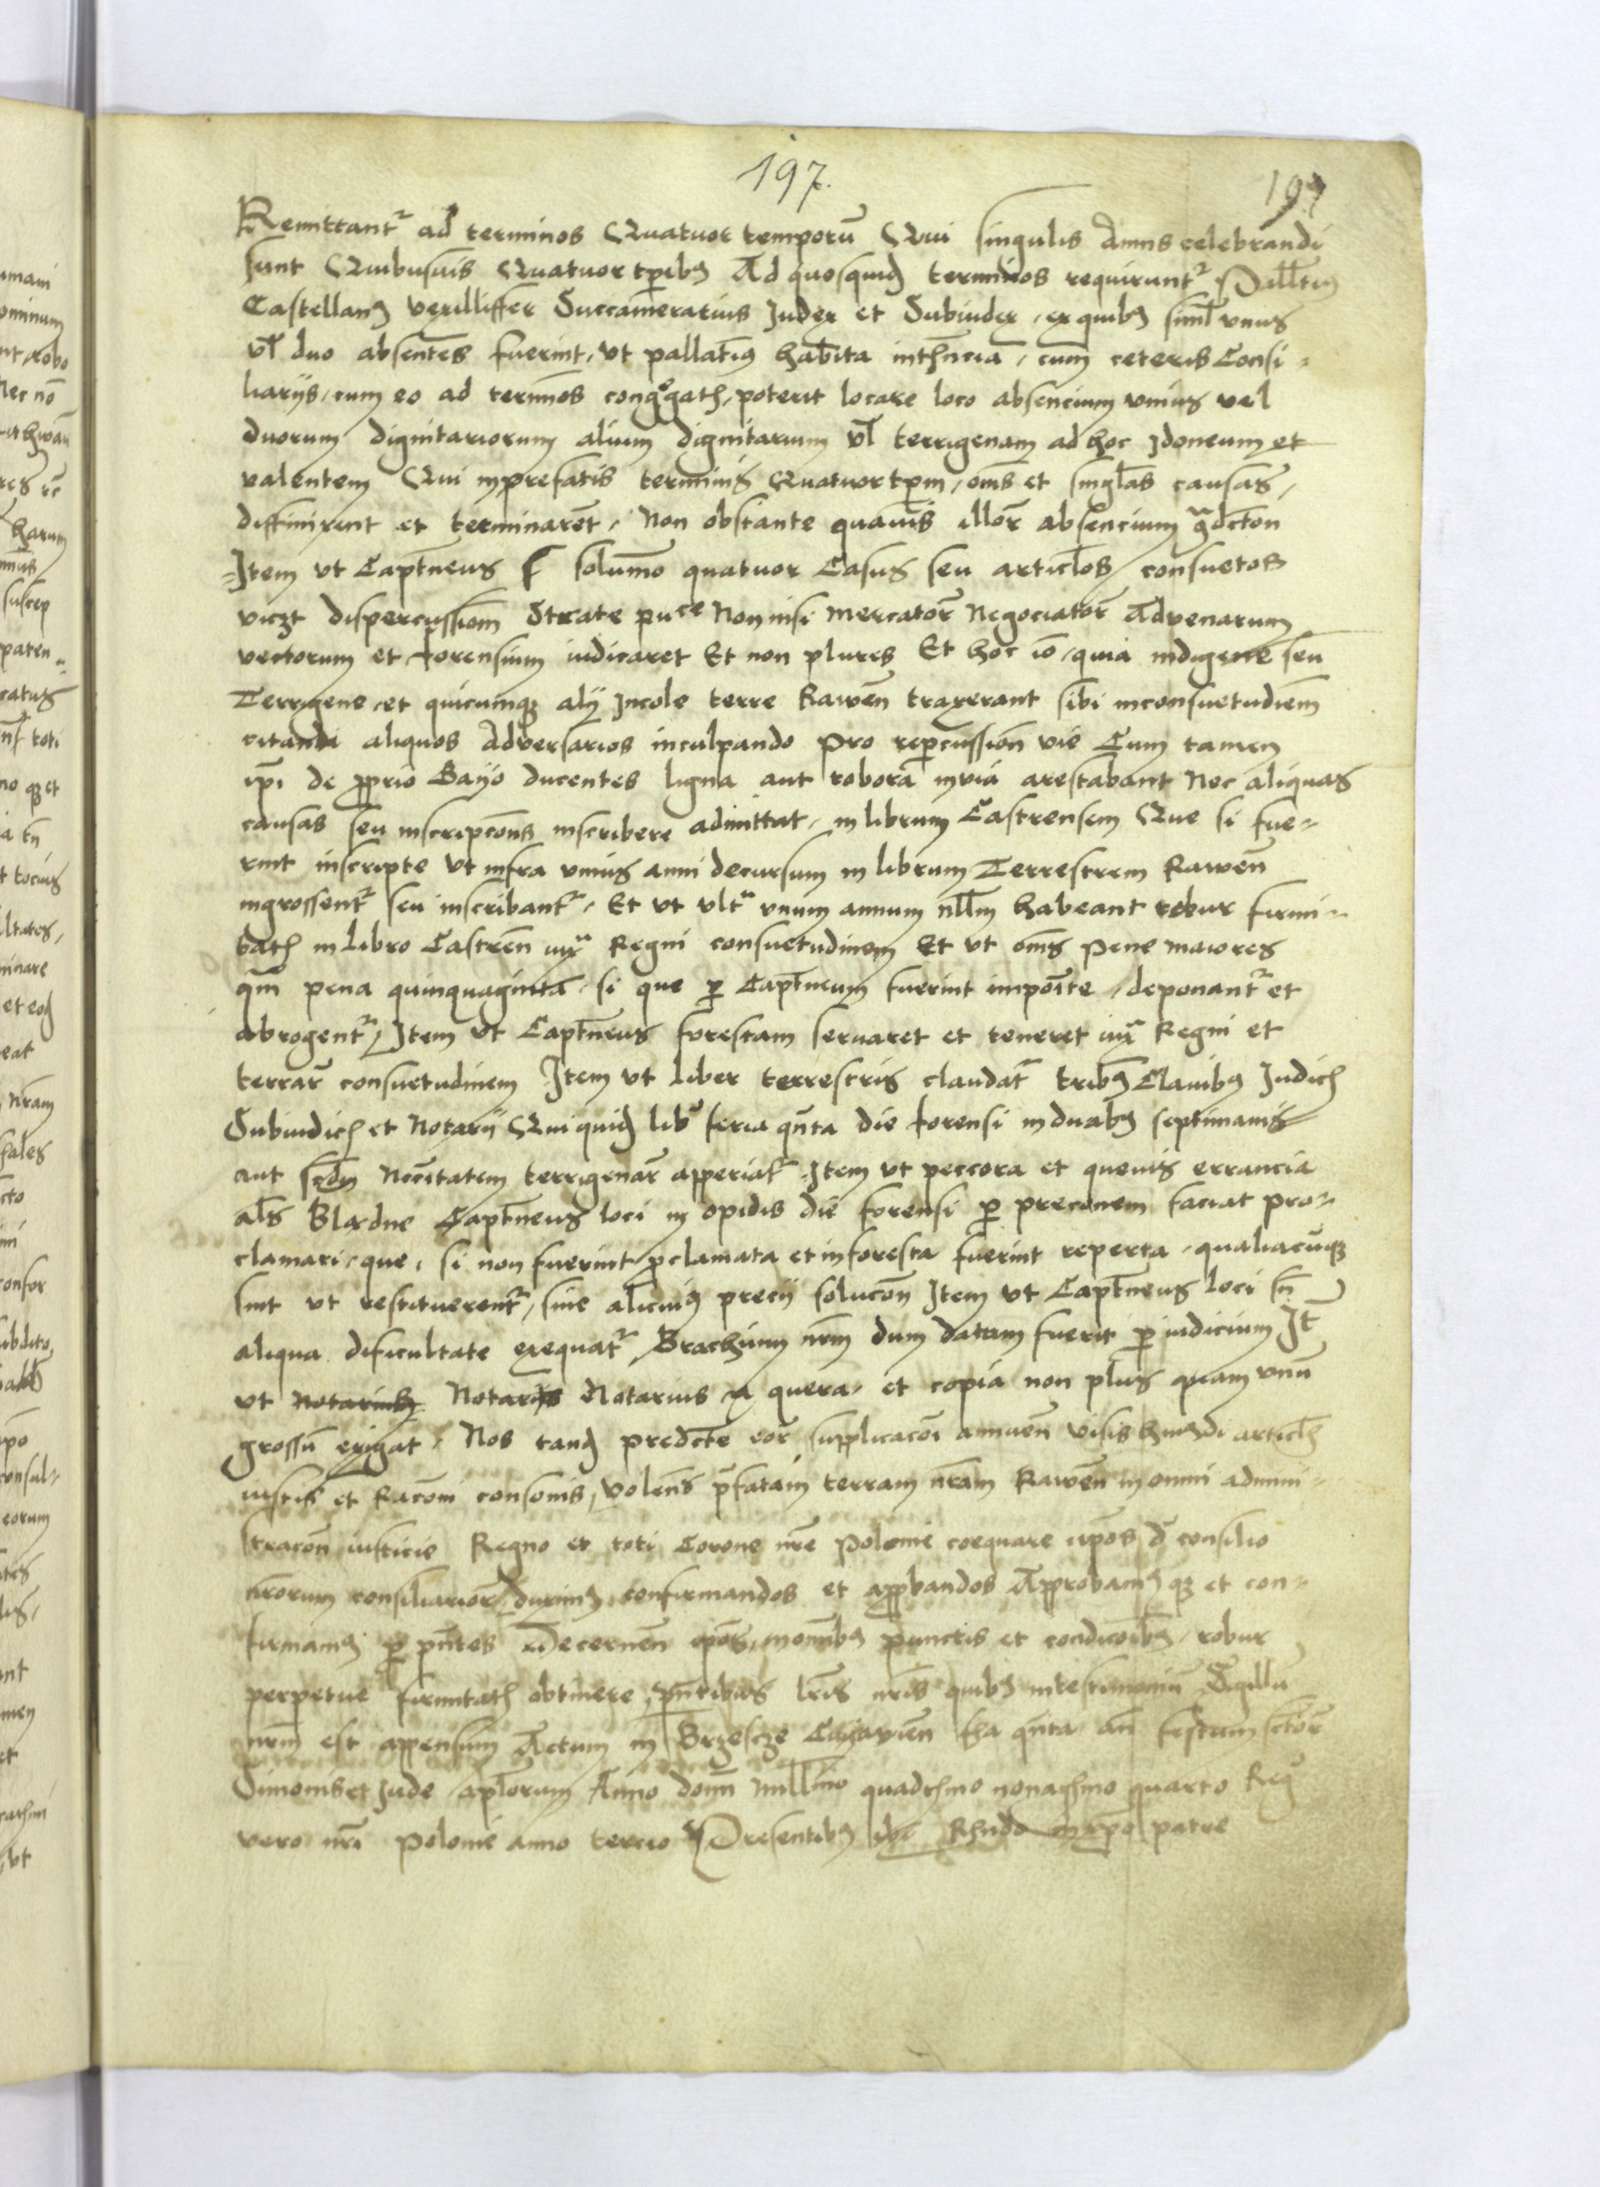 197.
197
Remittantr ad terminos Quatuor temporū Qui singulis Annis celebrandi
sunt Quibusuis Quatuor tpibus Ad quosquid terminos requiruntr Pallatius
Castellanus vexilliffer Succamerarius Iudex et Subiudex, ex quibus siml vnus
vl duo absentes fuerint, vt pallatius habita, cum ceteris Consi-
liarijs, cum eo ad terminos congregatis, poterit locare loco absencium vnius vel
duorum dignitariorum alium dignitarium vl terrigenam ad hoc Idoneum et
valentem Qui in prefatis terminis Quatuor tpm, oms et singlas causas,
diffinirent et terminarēt, Non obstante quauis illor absencium
Item vt Capitneus solumo quatuor Casus seu articlos consuetos
viczt dispercussiom Strate puce Non nisi mercator Negociator Advenarum
vectorum et forensium iudicaret Et non plures Et hoc io, quia indigene seu
Terrigene, et quicunqz alij Incole terre Rawen traxerant sibi in consuetudiem
citandi aliquos Adversarios inculpando pro repercussion vie Cum tamen
ipi de pprio Gayo ducentes ligna aut robora in via arestabant Nec aliquas
causas seu inscripcons inscribere admittat, in librum Castrensem Que si fue-
rint inscripte vt infra vnius anni decursum in librum Terrestrem Rawen
ingrossentr seu inscribantr, Et vt vltra vnum annum nllm habeant robur firmi-
tatis in libro Castren iuxta Regni consuetudinem Et vt oms pene maiores
qm pena quinquaginta, si que p Captneum fuerint impoite, deponantr et
abrogentr, Item vt Captneus forestam seruaret et teneret iuxta Regni et
terrar consuetudinem Item vt liber terrestris claudatr tribus Clauibus Iudicis
Subiudicis et Notarij Qui quid libr feria qnta die forensi in duabus septimanis
aut scdm Necitatem terrigenar apperiatr Item vt peccora et queuis errancia
als Blædne Captneus loci in opidis die forensi p preconem faciat pro-
clamari, que, si non fuerint pclamata et in foresta fuerint reperta, qualiacūqz
sint vt restituerentr, sine alicuius precij solucon Item vt Captneus loci sn
aliqua dificultate exequatr Brachium nrm dum datum fuerit p iudicium It
vt Notarius Notarius Notarius a quera, et copia non plus quam vnū
grossū exigat, Nos tandem predcte eor supplicacoi annuen visis articlis
iustis et Racom consonis, volens pfatam terram nram Rawen in omni admini-
stracon iusticie Regno et toti Corone nre Polonie coequare ipos d consilio
nrorum consiliarior duximus confirmandos et apprbandos Approbamus qz et con-
firmamus p pntes Decernen ipos, in omnibus punctis et condicoibus, robur
perpetue firmitatis obtinere, pntibus lris nris quibus in testimoniū Sigillū
nrm est appensum Actum in Brzescze Cuyavien fia qnta an festum sctor
Simonis et Jude, aplorum Anno domi Millimo quadrigesimo nonagesimo quarto Reg
vero nri Polonie anno tercio Presentibus ibi in xpo patre